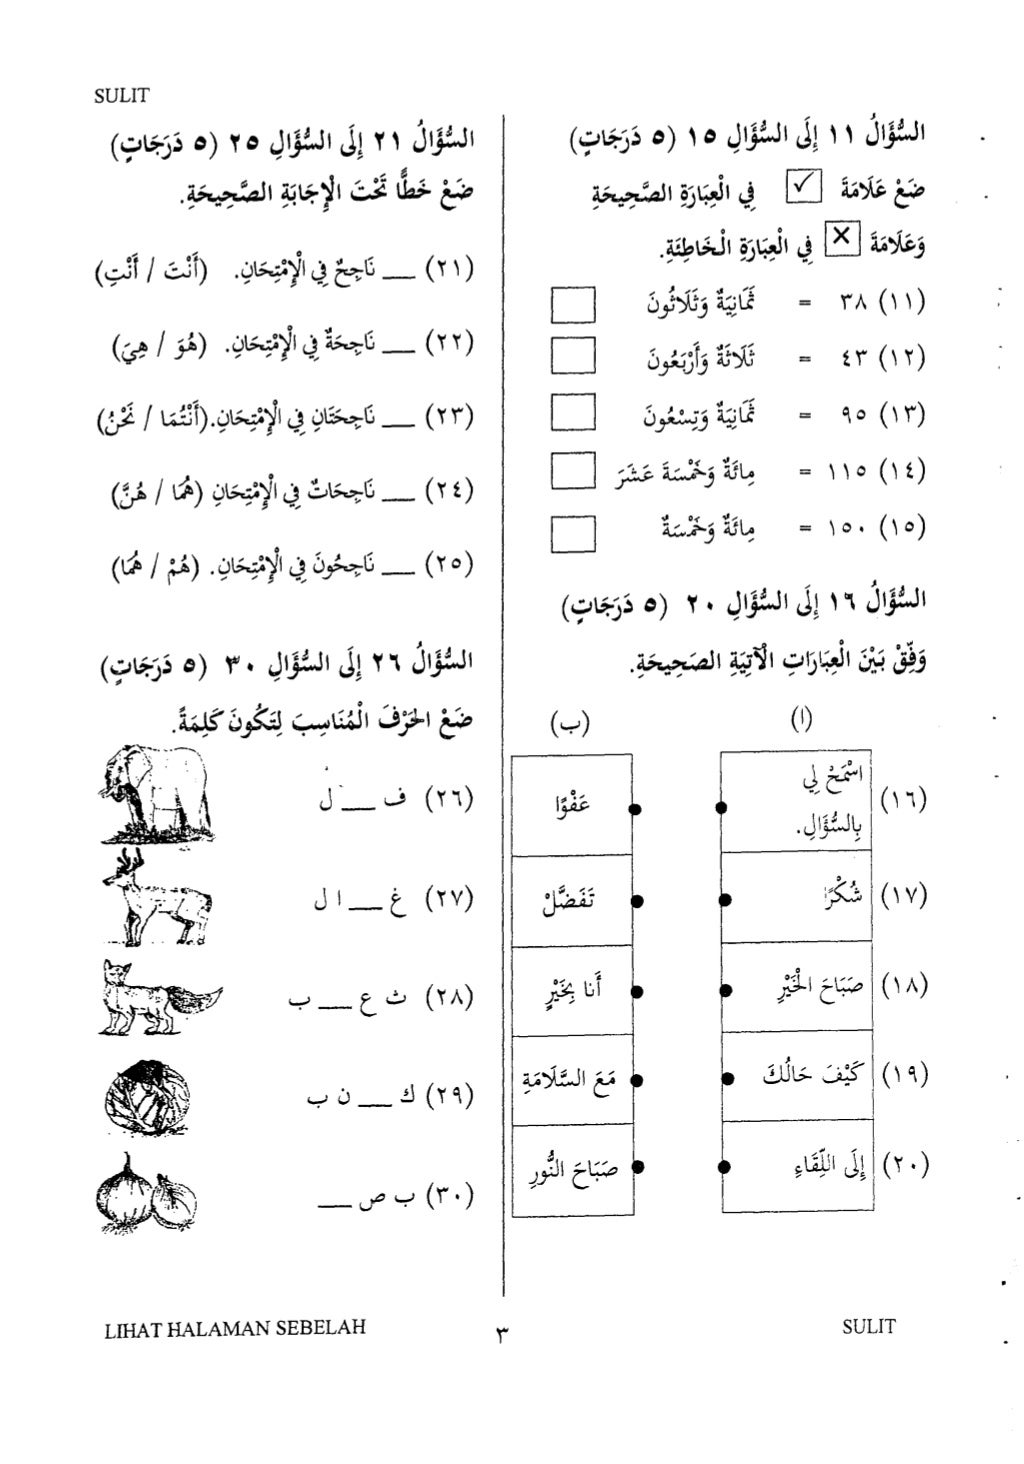 SULIT
السُّؤَالُ ١١ إِلَى السُّؤَالِ ١٥ (٥ دَرَجَاتٍ)
ضَعْ عَلَامَةَ ✓ فِي الْعِبَارَةِ الصَّحِيحَةِ
وَعَلَامَةَ × فِي الْعِبَارَةِ الْخَاطِئَةِ.
(١١) ٣٨ = ثَمَانِيَةٌ وَثَلَاثُونَ
(١٢) ٤٣ = ثَلَاثَةٌ وَأَرْبَعُونَ
(١٣) ٩٥ = ثَمَانِيَةٌ وَتِسْعُونَ
(١٤) ١١٥ = مِائَةٌ وَخَمْسَةَ عَشَرَ
(١٥) ١٥٠ = مِائَةٌ وَخَمْسَةٌ
السُّؤَالُ ١٦ إِلَى السُّؤَالِ ٢٠ (٥ دَرَجَاتٍ)
وَفِّقْ بَيْنَ الْعِبَارَاتِ الْآتِيَةِ الصَحِيحَةِ.
(ا) (ب)
(١٦) اسْمَحْ لِي
بِالسُّؤَالِ. عَفْوًا
(١٧) شُكْرًا تَفَضَّلْ
(١٨) صَبَاحَ الْخَيْرِ أَنا بِخَيْرٍ
(١٩) كَيْفَ حَالُكَ مَعَ السَّلَامَةِ
(٢٠) إِلَى اللِّقَاءِ صَبَاحَ النُّورِ
السُّؤَالُ ٢١ إِلَى السُّؤَالِ ٢٥ (٥ دَرَجَاتٍ)
ضَعْ خَطًّا تَحْتَ الْإِجَابَةِ الصَّحِيحَةِ.
(٢١) ___ نَاجِحٌ فِي الْإِمْتِحَانِ. (أَنْتَ / أَنْتِ)
(٢٢) ___ نَاجِحَةٌ فِي الْإِمْتِحَانِ. (هُوَ / هِيَ)
(٢٣) ___ نَاجِحَتَانِ فِي الْإِمْتِحَانِ.(أَنْتُمَا / نَحْنُ)
(٢٤) ___ نَاجِحَاتٌ فِي الْإِمْتِحَانِ (هُمَا / هُنَّ)
(٢٥) ___ نَاجِحُونَ فِي الْإِمْتِحَانِ. (هُمْ / هُمَا)
السُّؤَالُ ٢٦ إِلَى السُّؤَالِ ٣٠ (٥ دَرَجَاتٍ)
ضَعْ الحَرْفَ الْمُنَاسِبَ لِتَكُونَ كَلِمَةً.
(٢٦) ف ___ ل
(٢٧) غ ___ ا ل
(٢٨) ث ع ___ ب
(٢٩) ك ___ ن ب
(٣٠) ب ص ___
LIHAT HALAMAN SEBELAH
٣
SULIT